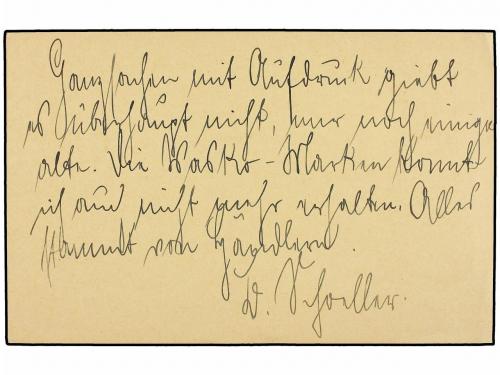 Ganzsachen mit Aufdruck giebt
es überhaupt nicht, nur noch einige
alte. Die Wasko-Marken konnte
ich auch nicht mehr erhalten. Alles
stammt von Händlern.
D. Schoeller.